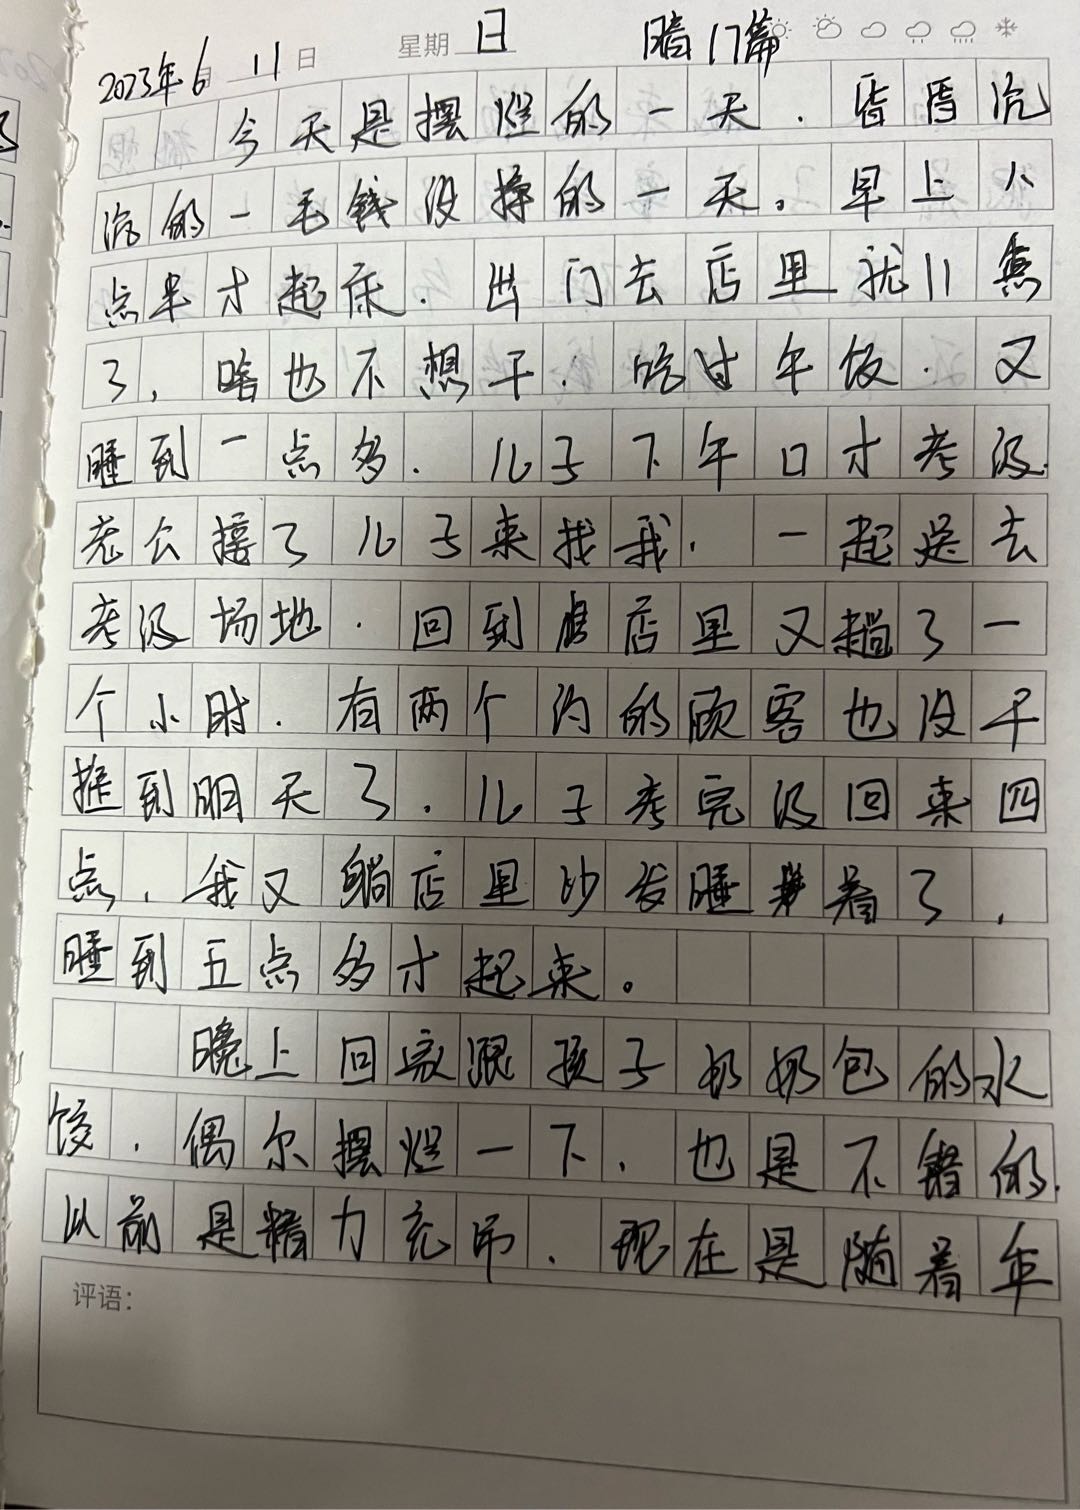 2023年6月11日 星期日 晴 17篇
今天是摆烂的一天.昏昏沉
沉的一毛钱没挣的一天。早上八
点半才起床.出门去店里就11点
了,啥也不想干.吃过午饭.又
睡到一点多.儿子下午口才考级.
老公接了儿子来找我.一起送去
考级场地.回到店里又躺了一
个小时.有两个约的顾客也没干
推到明天了.儿子考完级回来四
点,我又躺店里沙发睡着了,
睡到五点多才起来。
晚上回家跟孩子奶奶包的水
饺.偶尔摆烂一下,也是不错的.
以前是精力充沛.现在是随着年
评语: